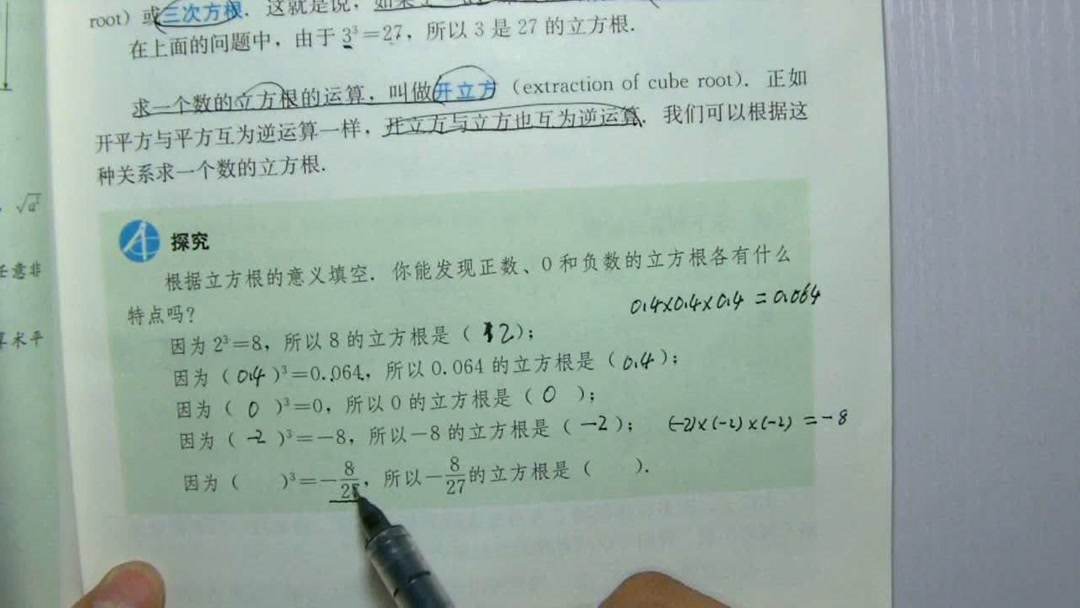 root）或三次方根．这就是说，如果
在上面的问题中，由于 3³=27，所以 3 是 27 的立方根．
求一个数的立方根的运算，叫做开立方（extraction of cube root）．正如
开平方与平方互为逆运算一样，开立方与立方也互为逆运算．我们可以根据这
种关系求一个数的立方根．
√a²
任意非
算术平
探究
根据立方根的意义填空．你能发现正数、0 和负数的立方根各有什么
特点吗？
0.4×0.4×0.4 = 0.064
因为 2³=8，所以 8 的立方根是（ 2 ）；
因为（ 0.4 ）³=0.064，所以 0.064 的立方根是（ 0.4 ）；
因为（ 0 ）³=0，所以 0 的立方根是（ 0 ）；
因为（ -2 ）³=-8，所以-8 的立方根是（ -2 ）； (-2)×(-2)×(-2) = -8
因为（ ）³=-8/27，所以-8/27的立方根是（ ）．